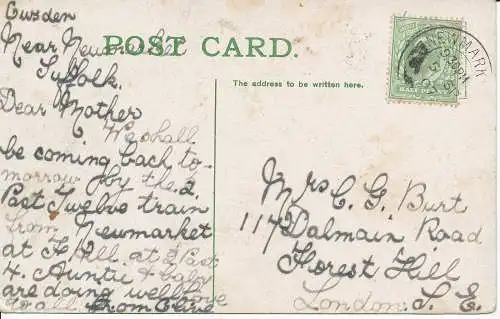 Cusden
Near Newmarket
Suffolk.
Dear Mother
We shall
be coming back to-
morrow by the 2.
Past Twelve train
from Newmarket
at F Hill at 2 Past
4. Auntie & baby
are doing well love
to all from Clive
POST CARD.
The address to be written here.
HALF PENNY
NEWMARK
Mrs C. G. Burt
117 Dalmain Road
Forest Hill
London. S. E.